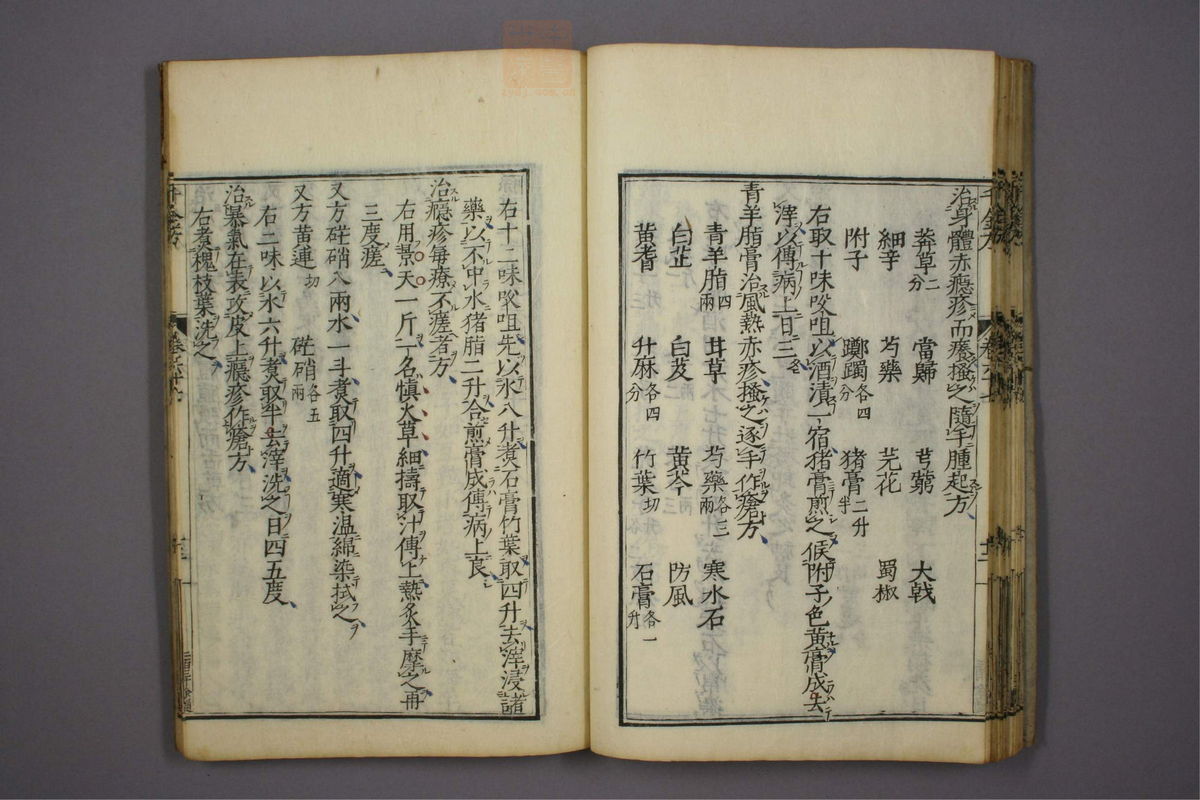 治身體赤癮疹而癢搔之隨手腫起方
莽草二分 當歸 芎藭 大戟
細辛 芍藥 芫花 蜀椒
附子 躑躅各四分 猪膏二升半
右取十味㕮咀以酒漬一宿猪膏煎之候附子色黃膏成去
滓以傅病上日三
青羊脂膏治風熱赤疹搔之逐手作瘡方
青羊脂四兩 甘草 芍藥各三兩 寒水石
白芷 白芨 黃芩 防風
黃耆 升麻各四分 竹葉切 石膏各一升
右十二味㕮咀先以水八升煑石膏竹葉取四升去滓浸諸
藥以不中水猪脂二升合煎膏成傅病上良
治癮疹每療不瘥者方
右用景天一斤一名愼火草細擣取汁傅上熱炙手摩之再
三度瘥
又方硭硝八兩水一斗煑取四升適寒温綿染拭之
又方黃連切 硭硝各五兩
右二味以水六升煑取半去滓洗之日四五度
治暴氣在表攻皮上癮疹作瘡方
右煑槐枝葉洗之
千金方